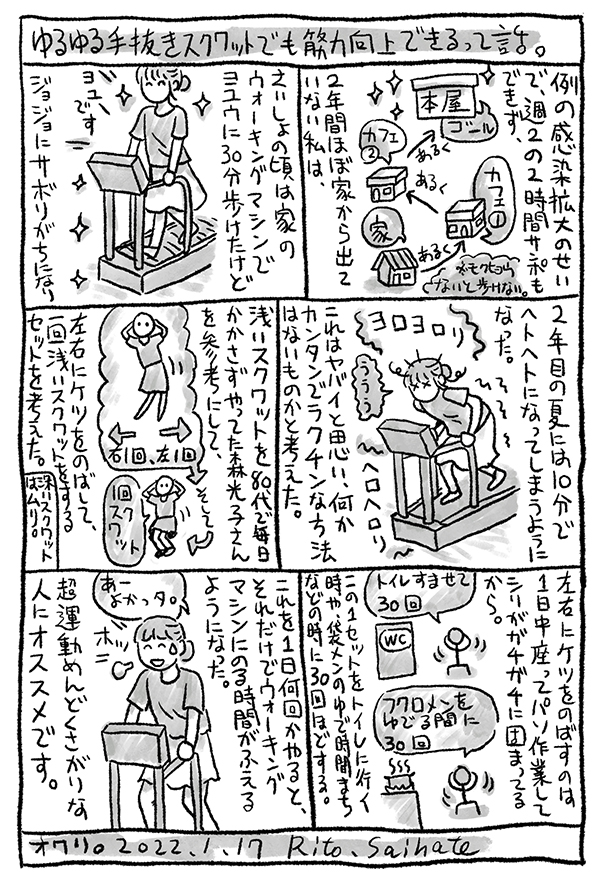 ゆるゆる手抜きスクワットでも筋力向上できるって話。
例の感染拡大のせい
で、週2の2時間サンポも
できず、
本屋
ゴール
カフェ
②
あるく
あるく
カフェ①
家
あるく
※モクヒョウ
ないと歩けない。
2年間ほぼ家から出て
いない私は、
さいしょの頃は家の
ウォーキングマシンで
ヨユウに30分歩けたけど
ヨユー
です
ジョジョにサボりがちになり
2年目の夏には10分で
ヘトヘトになってしまうように
なった。
ヨロヨロリ
ううう
ヘロヘロリ
これはヤバイと思い、何か
カンタンでラクチンな方法
はないものかと考えた。
浅いスクワットを80代で毎日
かかさずやってた森光子さん
を参考にして、
右1回、左1回
そして
1回
スクワット
左右にケツをのばして、
一回浅いスクワットをする
セットを考えた。
深いスクワット
はムリ。
左右にケツをのばすのは
1日中座ってパソ作業して
シリがガチガチに固まってる
から。
トイレすませて
30回
WC
フクロメンを
ゆでる間に
30回
この1セットをトイレに行く
時や、袋メンのゆで時間まち
などの時に30回ほどする。
これを1日何回かやると、
それだけでウォーキング
マシンにのる時間がふえる
ようになった。
あー
よかっタ。
ホッ
超運動めんどくさがりな
人にオススメです。
オワリ。2022.1.17 Rito.Saihate